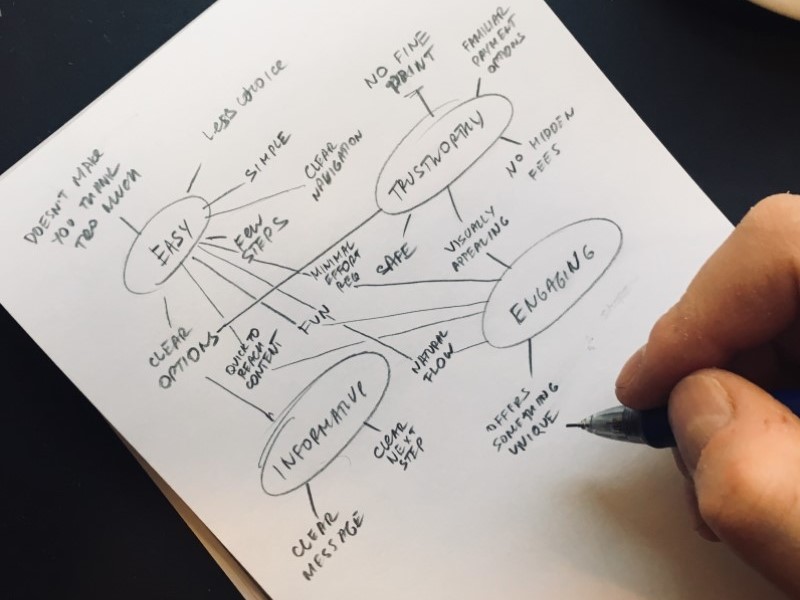 LESS CHOICE
SIMPLE
CLEAR
NAVIGATION
DOESN'T MAKE
YOU THINK
TOO MUCH
EASY
FEW
STEPS
MINIMAL
EFFORT
REQ
CLEAR
OPTIONS
QUICK TO
REACH
CONTENT
FUN
NATURAL
FLOW
NO FINE
PRINT
FAMILIAR
PAYMENT
OPTIONS
TRUSTWORTHY
NO HIDDEN
FEES
SAFE
VISUALLY
APPEALING
ENGAGING
OFFERS
SOMETHING
UNIQUE
INFORMATIVE
CLEAR
NEXT
STEP
CLEAR
MESSAGE